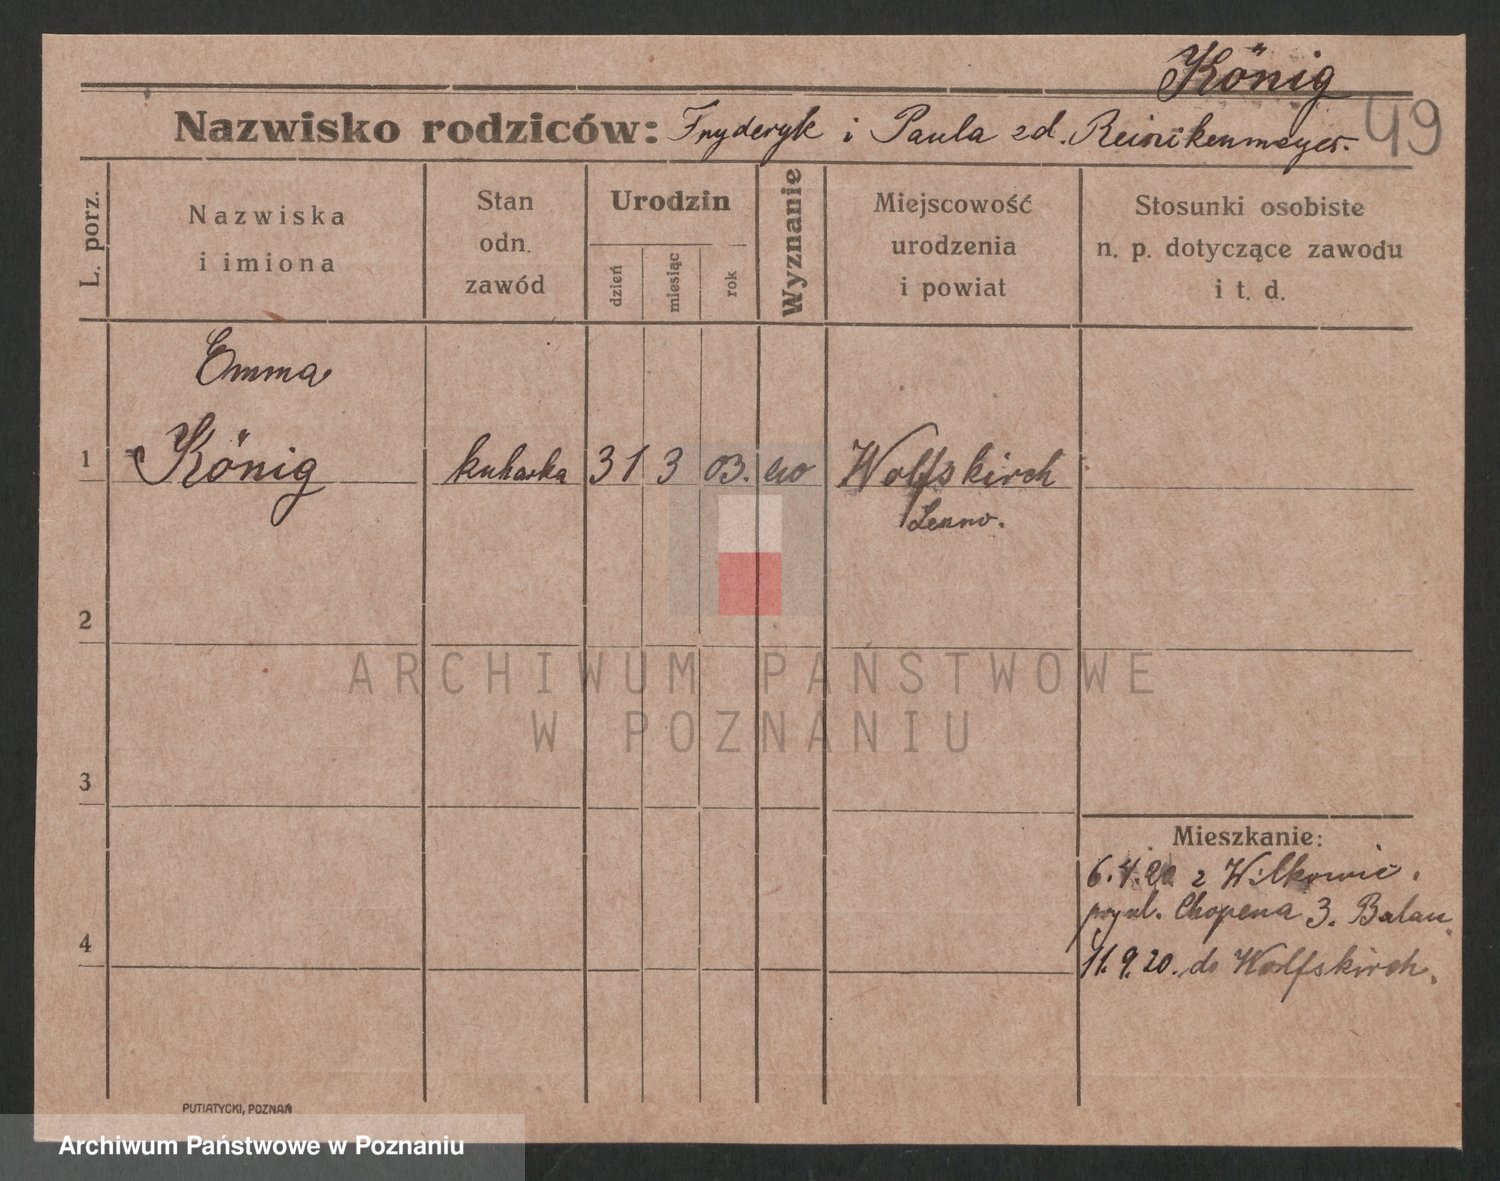 König
Nazwisko rodziców: Fryderyk i Paula zd. Reinikenmeyer. 49
L. porz.
Nazwiska
i imiona
Stan
odn.
zawód
Urodzin
dzień
miesiąc
rok
Wyznanie
Miejscowość
urodzenia
i powiat
Stosunki osobiste
n. p. dotyczące zawodu
i t. d.
Emma
1 König kuharka 31 3 03. Wolfskirch
2
3
4
Mieszkanie:
6.4.20 z Wilkowic.
Chopena 3.
11.9.20. do Wolfskirch.
PUTIATYCKI, POZNAŃ
ARCHIWUM PAŃSTWOWE
W POZNANIU
Archiwum Państwowe w Poznaniu